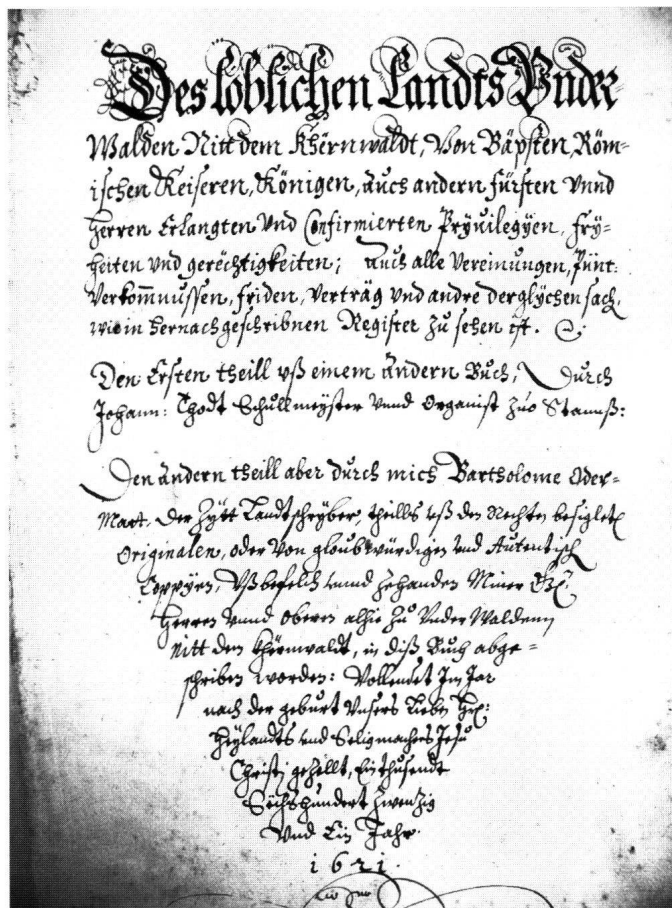 Des loblichen Landts Vnder-
Walden Nitt dem Khërnwaldt, Von Bäpsten, Röm-
ischen Keiseren, Königen, auch andern fürsten vnnd
herren Erlangten vnd Confirmierten Pryuilegyen, fry-
heiten vnd gerechtigkeiten; auch alle vereinungen, Pünt:
verkomnussen, friden, verträg vnd andre derglychen sach,
wie in hernach geschribnen Register zu sehen ist.
Den Ersten theill vß einem andern Buch, Durch
Johann: Thodt Schullmeyster vnnd Organist zuo Stannß:
Den andern theill aber durch mich Bartholome Oder-
Mart. der Zytt Landtschryber, theills vß den Rechten besigleten
Originalen, oder von gloubwürdigen vnd Autentisch
Coppyen, Vß befelch vnnd zehanden Miner
Herren vnnd Oberen alhie zu VnderWalden
nitt dem khërnwaldt, in diß Buch abge-
schriben worden: Vollendet Im Jar
nach der geburt Vnsers Lieben
Heylandts vnd Seligmachers Jesu
Christj gezellt, Ein thusendt
Sechshundert zwenzig
Vnd Ein Jahr.
1621.